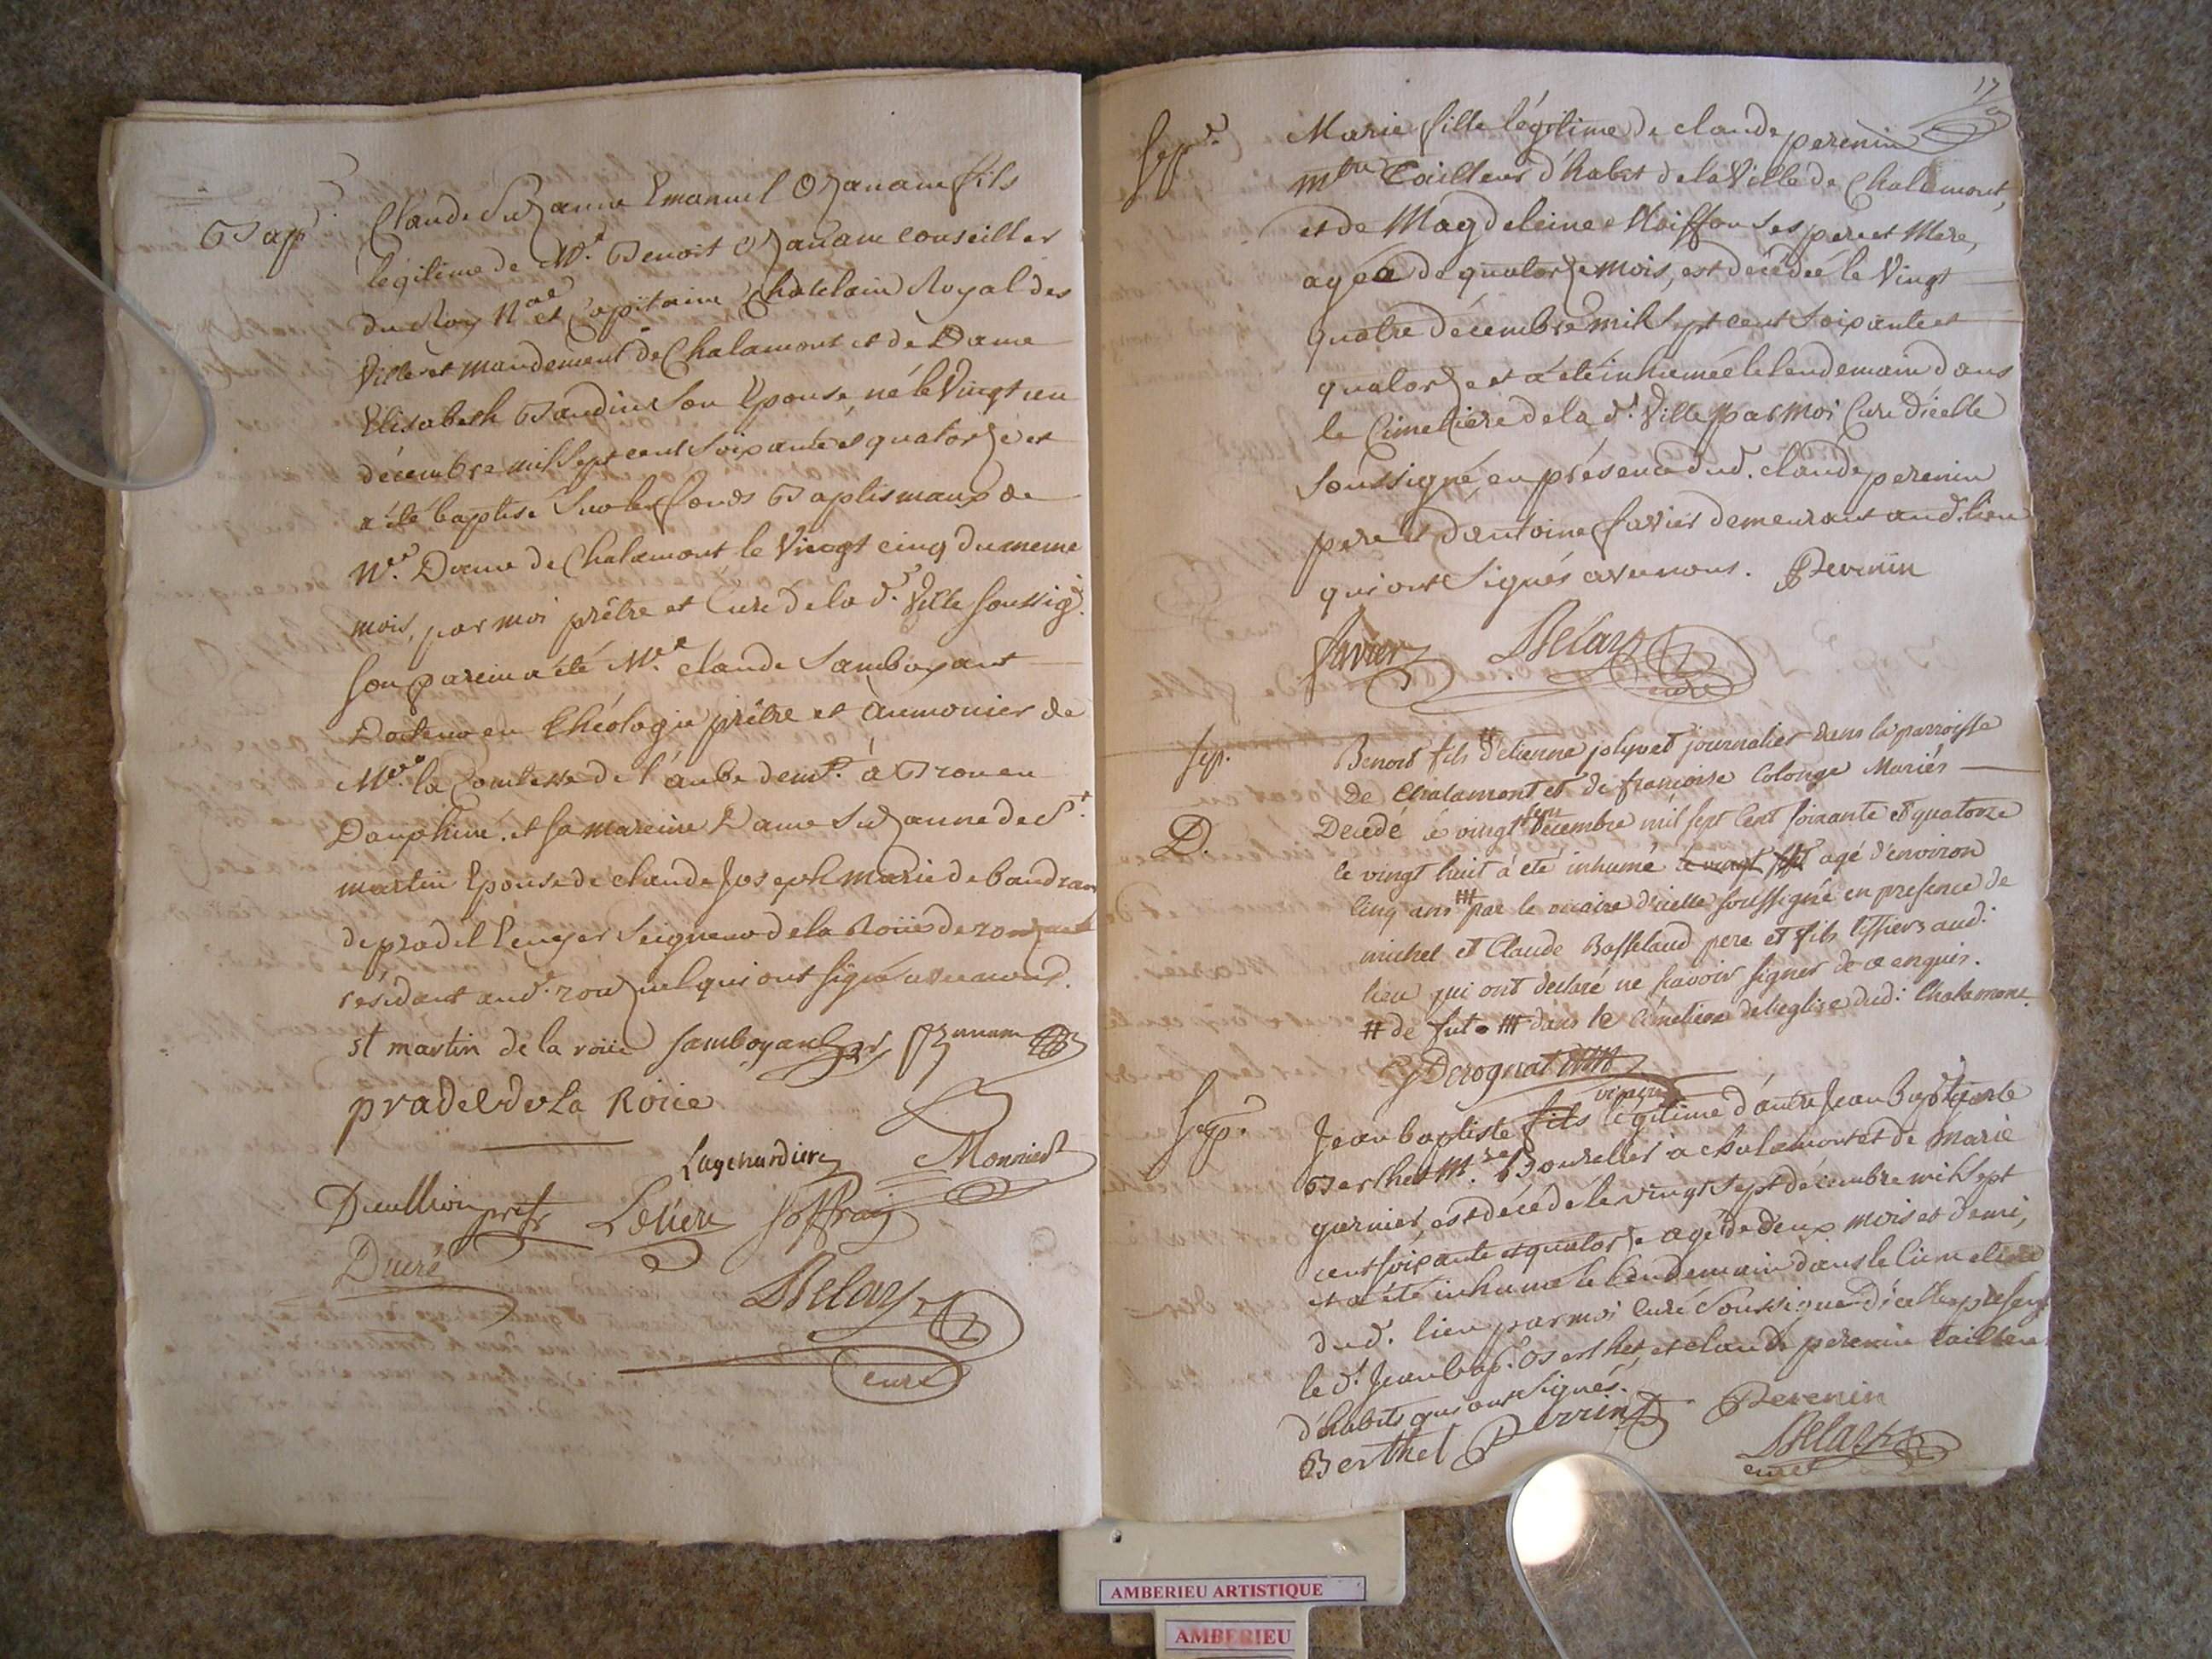 Bap.
Claude Suzanne Emanuel Ozanam fils
légitime de Mr. Benoit Ozanam conseiller
du Roy Nre et Capitaine Chatelain Royal des
Ville et mandement de Chalamont et de Dame
Elisabeth Baudin Son Epouse, né le Vingt un
décembre mil Sept cent Soixante et quatorze et
a été baptisé Sur les fonds Baptismaux de
Ne. Dame de Chalamont le Vingt cinq du meme
mois, par moi prêtre et Curé de la d. Ville Soussig.
Son parein a été Mre. Claude Samboyant
Docteur en Théologie prêtre et Aumonier de
Made. la Comtesse de l'aube demt. à Bron en
Dauphiné. et Sa mareine Dame Suzanne de St.
martin Epouse de Claude Joseph marie de baudran
de pradel Ecuyer Seigneur de la Roüe de
résidant aud. qui ont Signé avec nous.
st martin de la roüe Samboyant Ozanam
pradel de la Roüe
Lagenardiere Monnier
ptr Joffray
Ducré
Delay
curé
17
Sep.re
Marie fille légitime de claude perenin
mtre Tailleur d'habit de la Ville de Chalamont,
et de Magdeleine Moiffon Ses pere et Mere,
agée de quatorze mois, est décédée le Vingt
quatre décembre mil Sept cent Soixante et
quatorze et a été inhumée le lendemain dans
le Cimetiere de la d. Ville par moi Curé d'icelle
Soussigné, en présence dud. claude perenin
pere et d'antoine favier demeurant aud. lieu
qui ont Signés avec nous. Perenin
favier Delay
curé
Sep.
D.
Benoit fils # d'etienne jolyvet journalier dans la parroisse
de Chalamont et de francoise Colonge Mariés
Decedé le vingt sept décembre mil sept Cent soixante et quatorze
le vingt huit à été inhumé le vingt sept agé d'environ
cinq ans ## par le vicaire d'icelle soussigné en presence de
michel et Claude Basseland pere et fils tissiers aud.
lieu qui ont déclaré ne scavoir signer de ce enquis.
# de fut. ## dans le Cimetiere de l'eglise dud. Chalamont
Derognat
vicaire
Sep.
Jean baptiste fils légitime d'autre Jean Baptiste
Berthet Mre. Bourellier à chalamont et de marie
garnier, est décédé le vingt Sept décembre mil Sept
cent soixante et quatorze agé de deux mois et demi,
et a été inhumé le lendemain dans le Cimetiere
dud. lieu par moi Curé Soussigné d'icelle present
le d. Jean bap. Berthet, et claude perenin tailleur
d'habits qui ont Signés.
Berthet Perrin Perenin
Delay
curé
AMBERIEU ARTISTIQUE
AMBERIEU